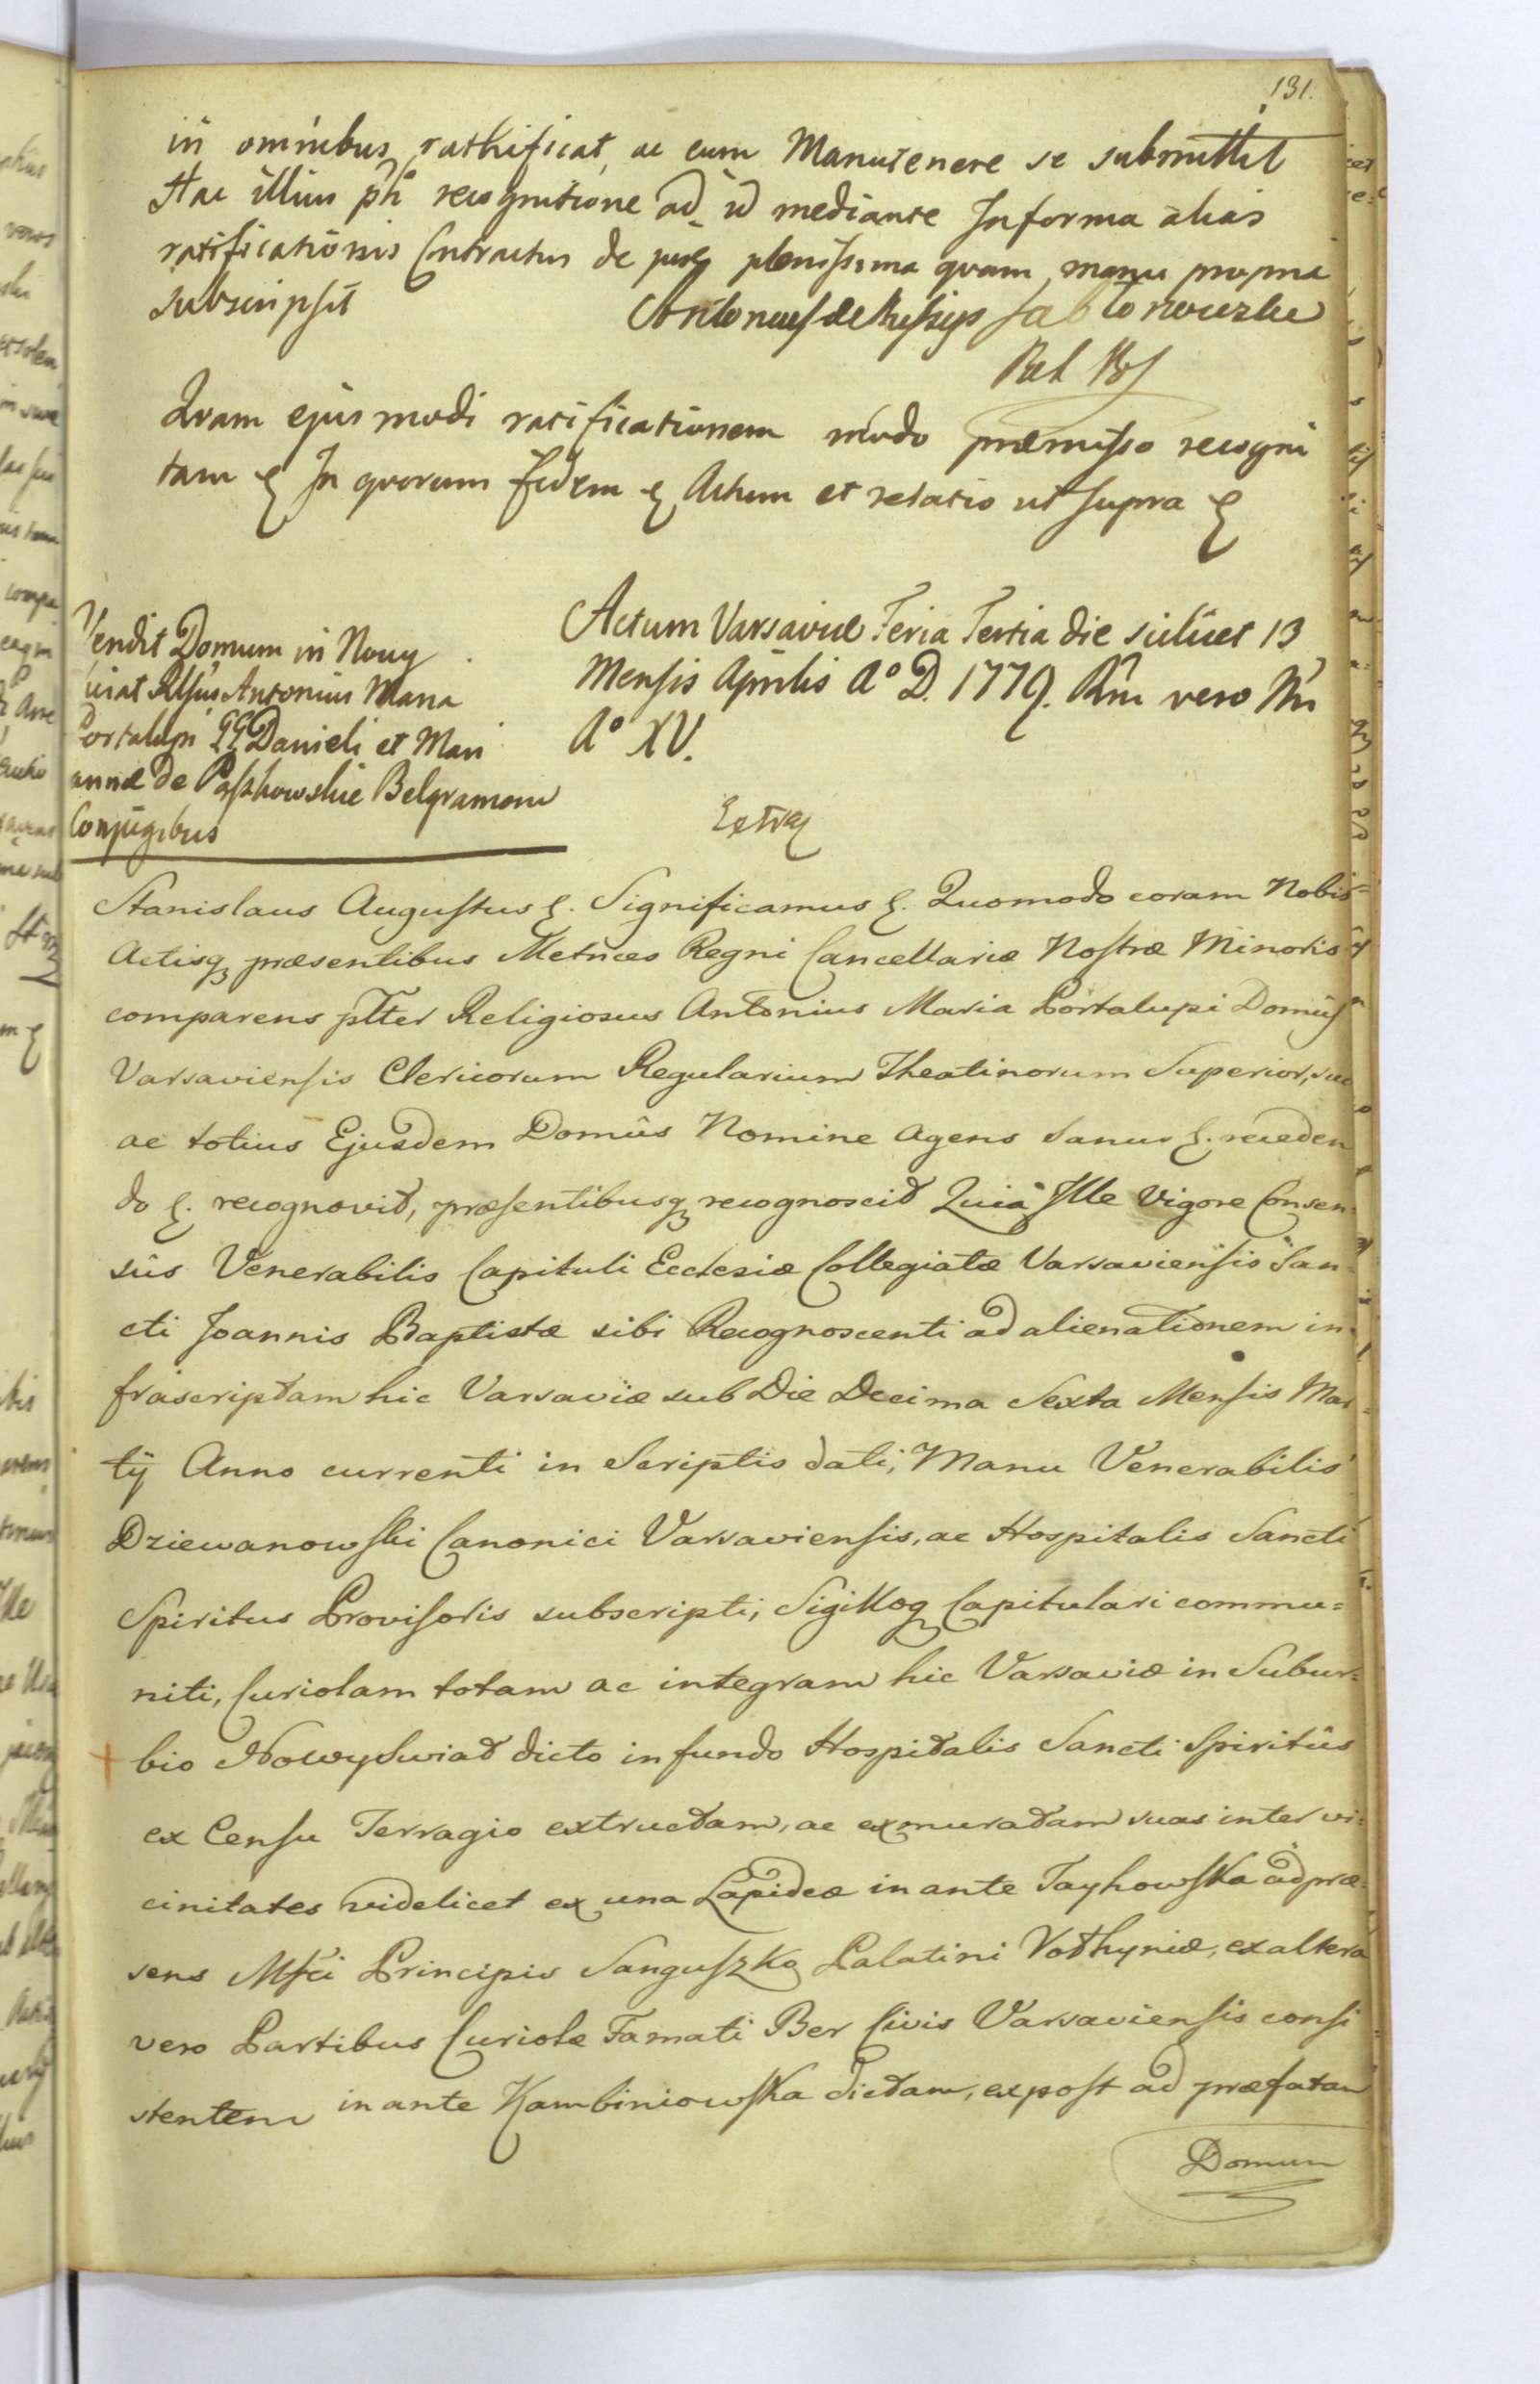 131.
in omnibus rathificat, ac eum Manutenere se submittit
Hac illius pñ recognitione ad id mediante Informa alias
ratificationis Contractus de jure plenissima quam manu propria
subscripsit Antonius de Prussys Jabłonowski
Quam ejusmodi ratificationem modo præmisso recogni
tam &. In quorum fidem &. Actum et relatio ut supra &.
Vendit Domum in Nowy
Swiat Rlsus Antonius Maria
Portalupi GG Danieli et Mari
annæ de Paszkowskie Belgramow
Conjugibus
Actum Varsaviæ Feria Tertia die scilicet 13
Mensis Aprilis A° D. 1779. Rñi vero Nri
A° XV.
Extra
Stanislaus Augustus &. Significamus &. Quomodo coram Nobis
Actisq præsentibus Metrices Regni Cancellariæ Nostræ Minoris
comparens plter Religiosus Antonius Maria Portalupi Domûs
Varsaviensis Clericorum Regularium Theatinorum Superior, suo
ac totius Ejusdem Domûs Nomine Agens Sanus &. receden
do &. recognovit, præsentibusq recognoscit Quia Ille Vigore Consen
sûs Venerabilis Capituli Ecclesiæ Collegiatæ Varsaviensis San=
cti Joannis Baptistæ sibi Recognoscenti ad alienationem in=
frascriptam hic Varsaviæ sub Die Decima Sexta Mensis Mar=
tij Anno currenti in Scriptis dati, Manu Venerabilis
Dziewanowski Canonici Varsaviensis, ac Hospitalis Sancti
Spiritus Provisoris subscripti, Sigilloq Capitulari commu=
niti, Curiolam totam ac integram hic Varsaviæ in Subur=
bio Nowy Swiat dicto in fundo Hospitalis Sancti Spiritûs
ex Censu Terragio extructam, ac exmuratam suas inter vi=
cinitates videlicet ex una Lapideæ in ante Tayhowska ad præ=
sens Mfci Principis Sanguszko Palatini Volhyniæ, ex altera
vero Partibus Curiolæ Famati Ber Civis Varsaviensis consi
stentem in ante Kambiniowska dictam, ex post ad præfatam
Domum